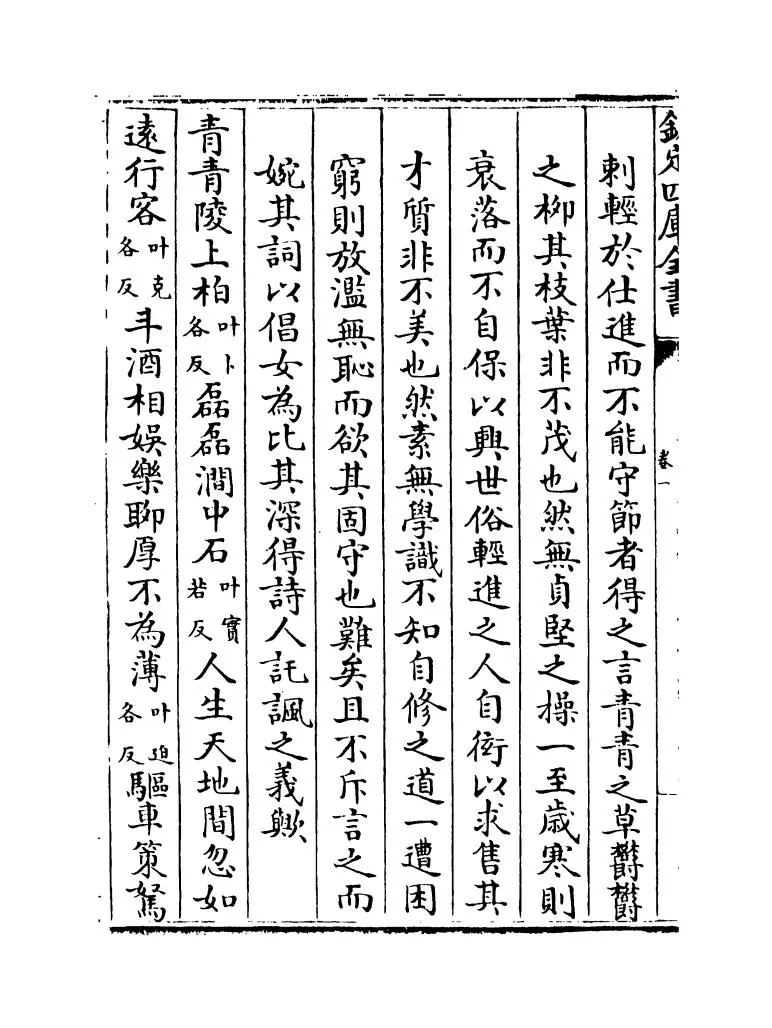 欽定四庫全書
卷一
刺輕於仕進而不能守節者得之言青青之草鬱鬱
之柳其枝葉非不茂也然無貞堅之操一至歳寒則
衰落而不自保以興世俗輕進之人自衒以求售其
才質非不美也然素無學識不知自修之道一遭困
窮則放濫無恥而欲其固守也難矣且不斥言之而
婉其詞以倡女為比其深得詩人託諷之義歟
青青陵上柏叶卜各反磊磊澗中石叶實若反人生天地間忽如
逺行客叶克各反斗酒相娯樂聊厚不為薄叶迫各反驅車策駑